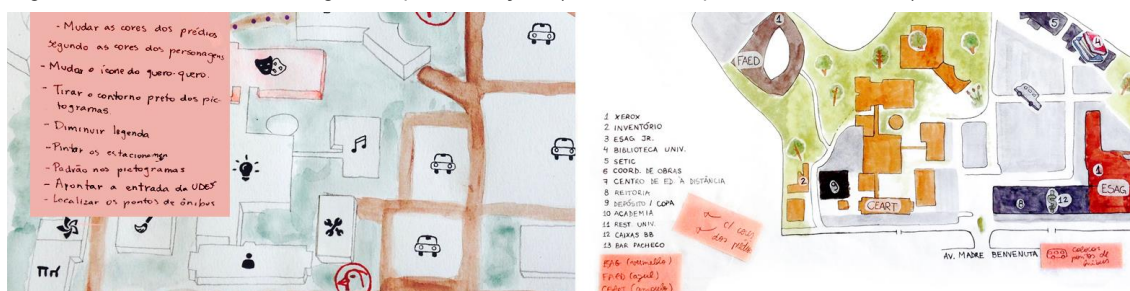 - Mudar as cores dos prédios
segundo as cores dos personagens
- Mudar o ícone do quero-quero.
- Tirar o contorno preto dos pic-
togramas
- Diminuir legenda
- Pintar os estacionamen
- Padrão nos pictogramas
- Apontar a entrada da UDESC
- Localizar os pontos de ônibus
1
FAED
5
4
1 XEROX
2 INVENTÓRIO
3 ESAG JR.
4 BIBLIOTECA UNIV.
5 SETIC
6 COORD. DE OBRAS
7 CENTRO DE ED. À DISTÂNCIA
8 REITORIA
9 DEPÓSITO / COPA
10 ACADEMIA
11 REST. UNIV.
12 CAIXAS BB
13 BAR PACHECO
2
9
CEART
8
12
1
ESAG
dos prédios
AV. MADRE BENVENUTA
colocar
pontos de
ônibus
(vermelho)
FAED (azul)
CEART (amarelo)